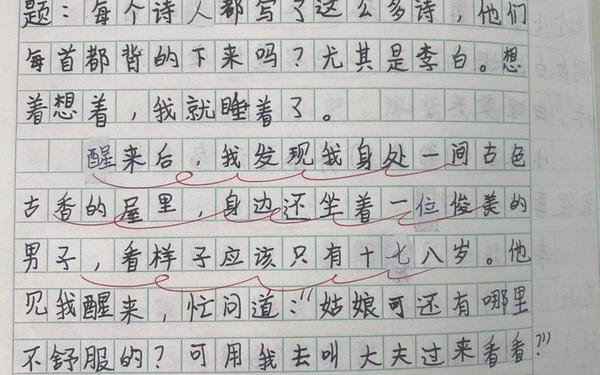 题：每个诗人都写了这么多诗，他们
每首都背的下来吗？尤其是李白。想
着想着，我就睡着了。
醒来后，我发现我身处一间古色
古香的屋里，身边还坐着一位俊美的
男子，看样子应该只有十七八岁。他
见我醒来，忙问道：“姑娘可还有哪里
不舒服的？可用我去叫大夫过来看看？”